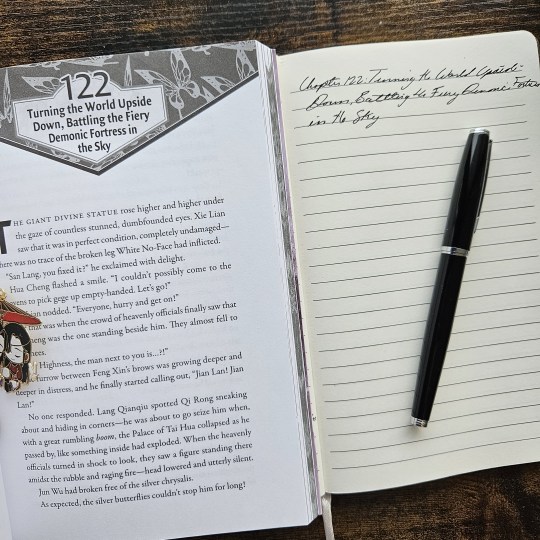 122
Turning the World Upside
Down, Battling the Fiery
Demonic Fortress in
the Sky
THE GIANT DIVINE STATUE rose higher and higher under
the gaze of countless stunned, dumbfounded eyes. Xie Lian
saw that it was in perfect condition, completely undamaged—
there was no trace of the broken leg White No-Face had inflicted.
"San Lang, you fixed it?" he exclaimed with delight.
Hua Cheng flashed a smile. "I couldn't possibly come to the
to pick gege up empty-handed. Let's go!"
nodded. "Everyone, hurry and get on!"
that was when the crowd of heavenly officials finally saw that
was the one standing beside him. They almost fell to
Highness, the man next to you is...?!"
furrow between Feng Xin's brows was growing deeper and
deeper in distress, and he finally started calling out, "Jian Lan! Jian
Lan!"
No one responded. Lang Qianqiu spotted Qi Rong sneaking
and hiding in corners—he was about to go seize him when,
with a great rumbling boom, the Palace of Tai Hua collapsed as he
passed by, like something inside had exploded. When the heavenly
officials turned in shock to look, they saw a figure standing there
amidst the rubble and raging fire—head lowered and utterly silent.
Jun Wu had broken free of the silver chrysalis.
As expected, the silver butterflies couldn't stop him for long!
Chapter 122: Turning the World Upside-
Down, Battling the Fiery Demonic Fortress
in the Sky